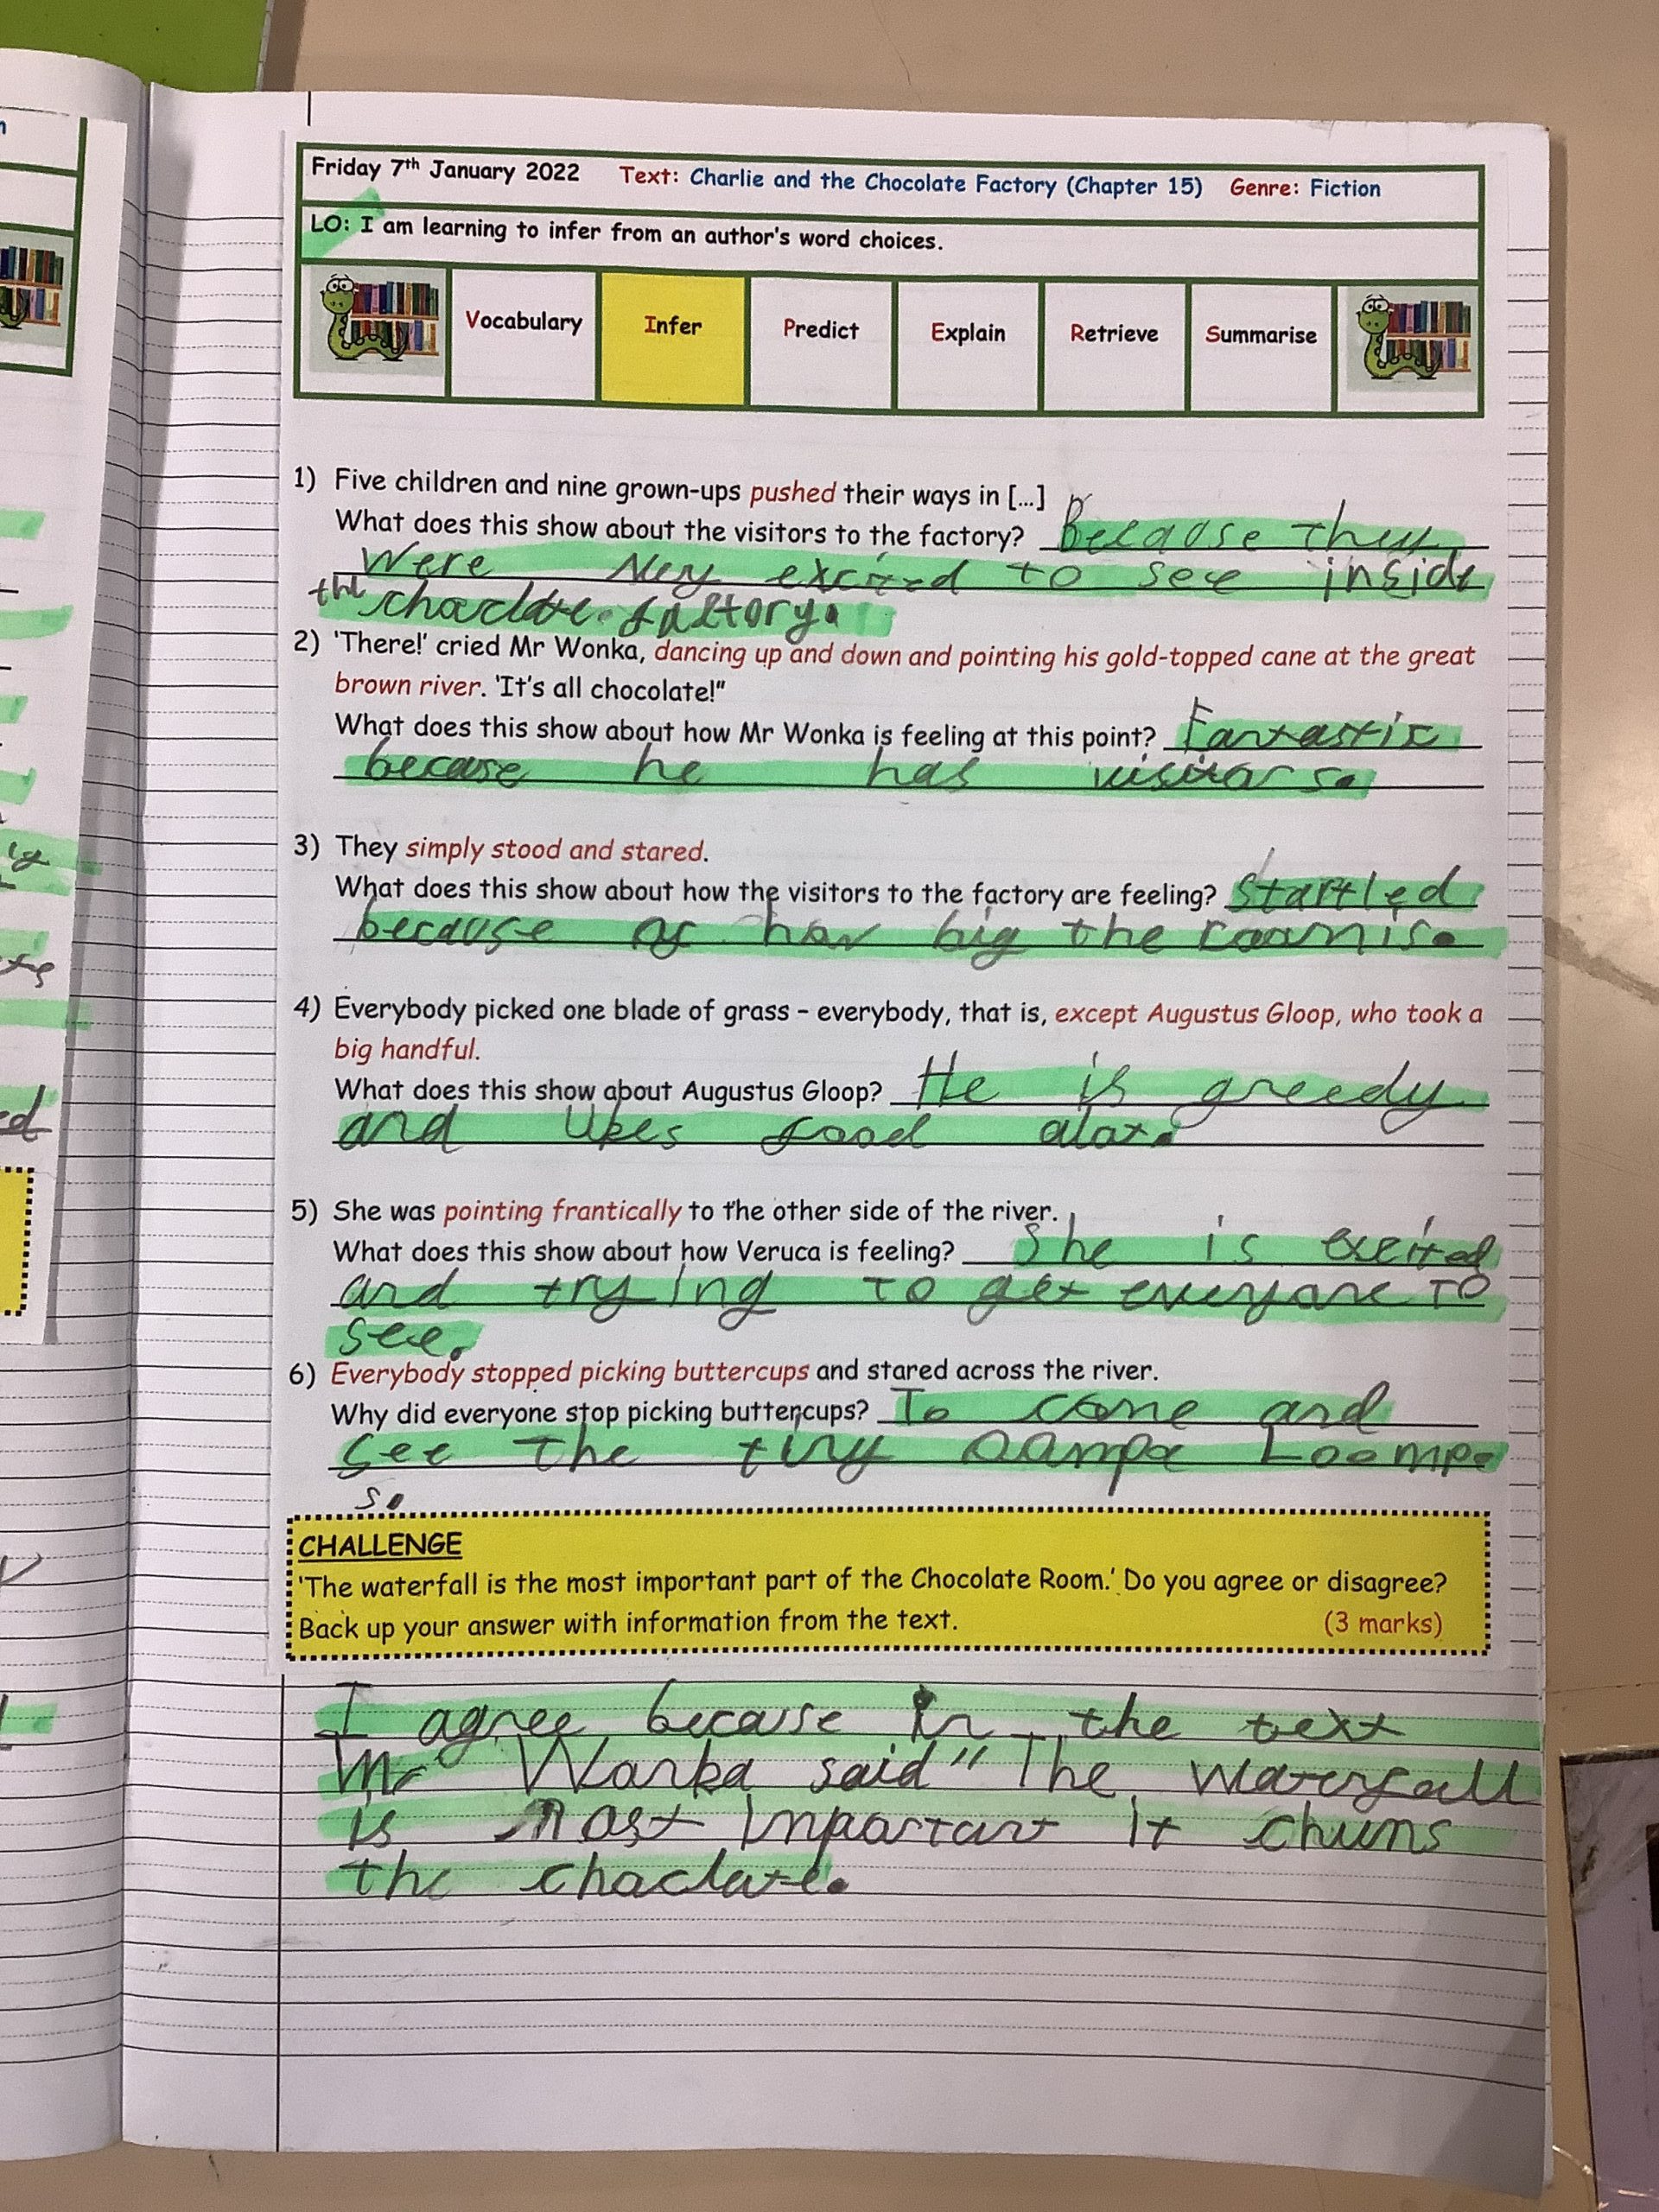 Friday 7th January 2022 Text: Charlie and the Chocolate Factory (Chapter 15) Genre: Fiction
LO: I am learning to infer from an author's word choices.
Vocabulary Infer Predict Explain Retrieve Summarise
1) Five children and nine grown-ups pushed their ways in [...]
What does this show about the visitors to the factory? Because they
were very excited to see inside
the choclate factory.
2) 'There!' cried Mr Wonka, dancing up and down and pointing his gold-topped cane at the great
brown river. 'It's all chocolate!"
What does this show about how Mr Wonka is feeling at this point? Fantastic
because he has visitors.
3) They simply stood and stared.
What does this show about how the visitors to the factory are feeling? Startled
because of how big the room is.
4) Everybody picked one blade of grass – everybody, that is, except Augustus Gloop, who took a
big handful.
What does this show about Augustus Gloop? He is greedy
and likes food alot.
5) She was pointing frantically to the other side of the river.
What does this show about how Veruca is feeling? She is excited
and trying to get everyone to
see.
6) Everybody stopped picking buttercups and stared across the river.
Why did everyone stop picking buttercups? To come and
see the tiny Oompa Loompa
s.
CHALLENGE
'The waterfall is the most important part of the Chocolate Room.' Do you agree or disagree?
Back up your answer with information from the text. (3 marks)
I agree because in the text
Mr Wonka said "The waterfall
is most important it churns
the choclate.